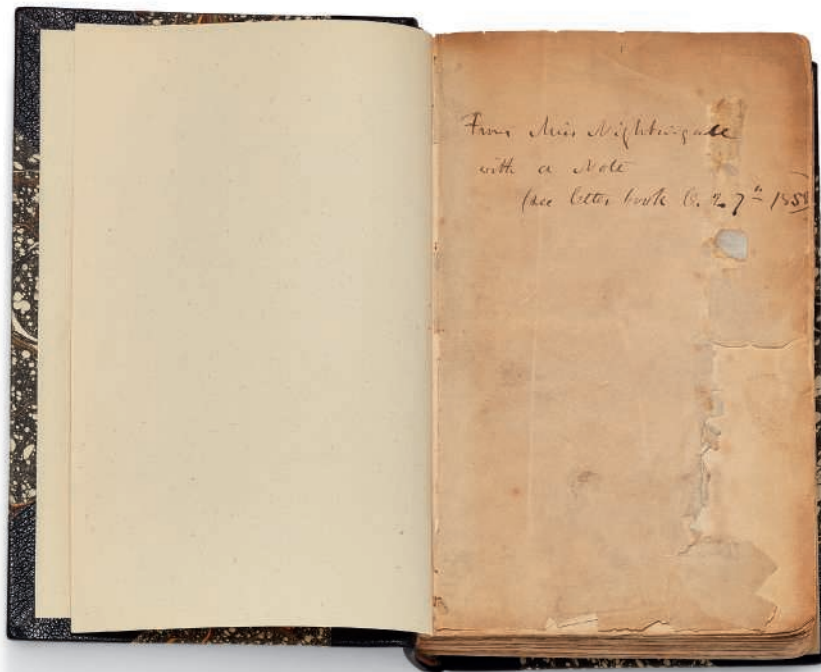 From Miss Nightingale
with a Note
(see letter book 7th 1858